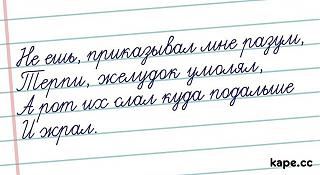 Не ешь, приказывал мне разум,
Терпи, желудок умолял,
А рот их слал куда подальше
И жрал.
kape.cc